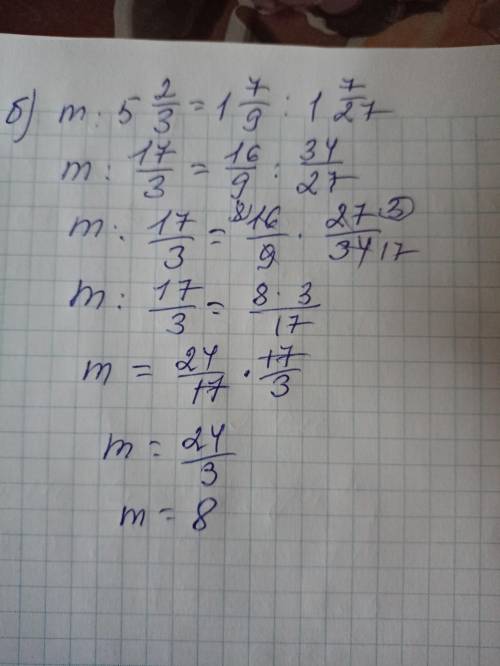 б) m : 5 2/3 = 1 7/9 : 1 7/27
m : 17/3 = 16/9 : 34/27
m : 17/3 = 8) 16/9 · 27/34 3 17
m : 17/3 = 8 · 3/17
m = 24/17 · 17/3
m = 24/3
m = 8